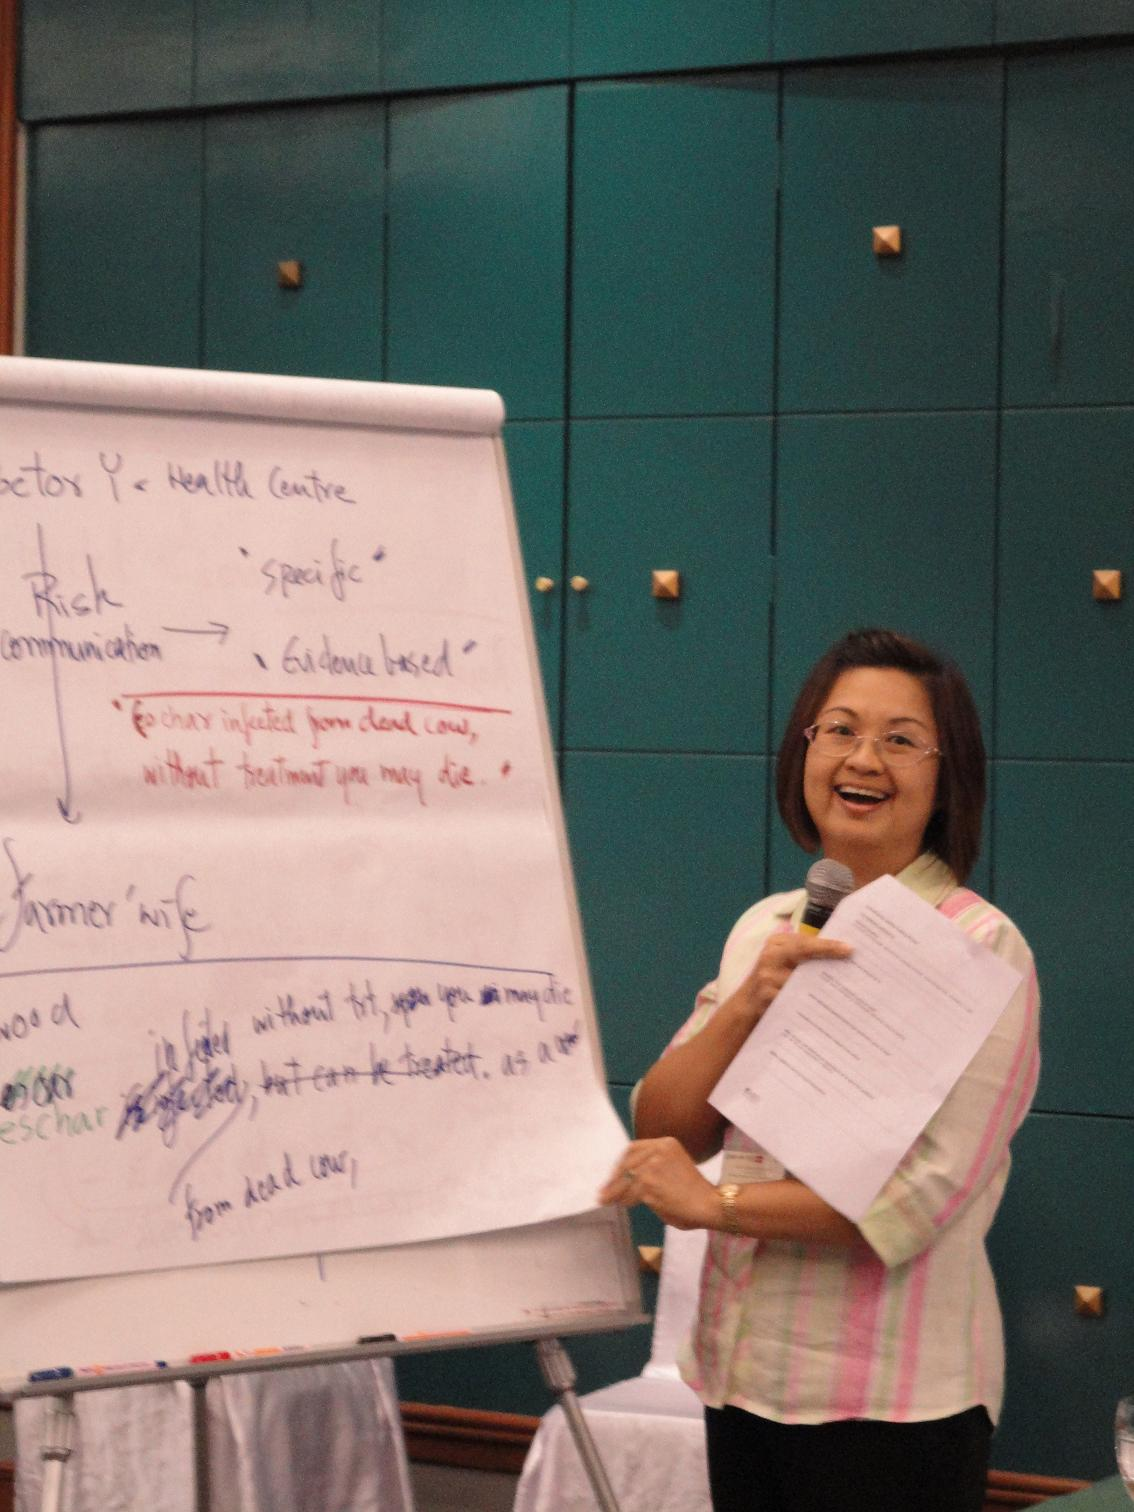 octor Y < Health Centre
"specific"
Risk
communication → " Evidence based "
" Eschar infected from dead cow,
without treatment you may die. "
farmer' wife
wood
infected without trt, you may die
eschar , but can be treated. as a
eschar
from dead cow,